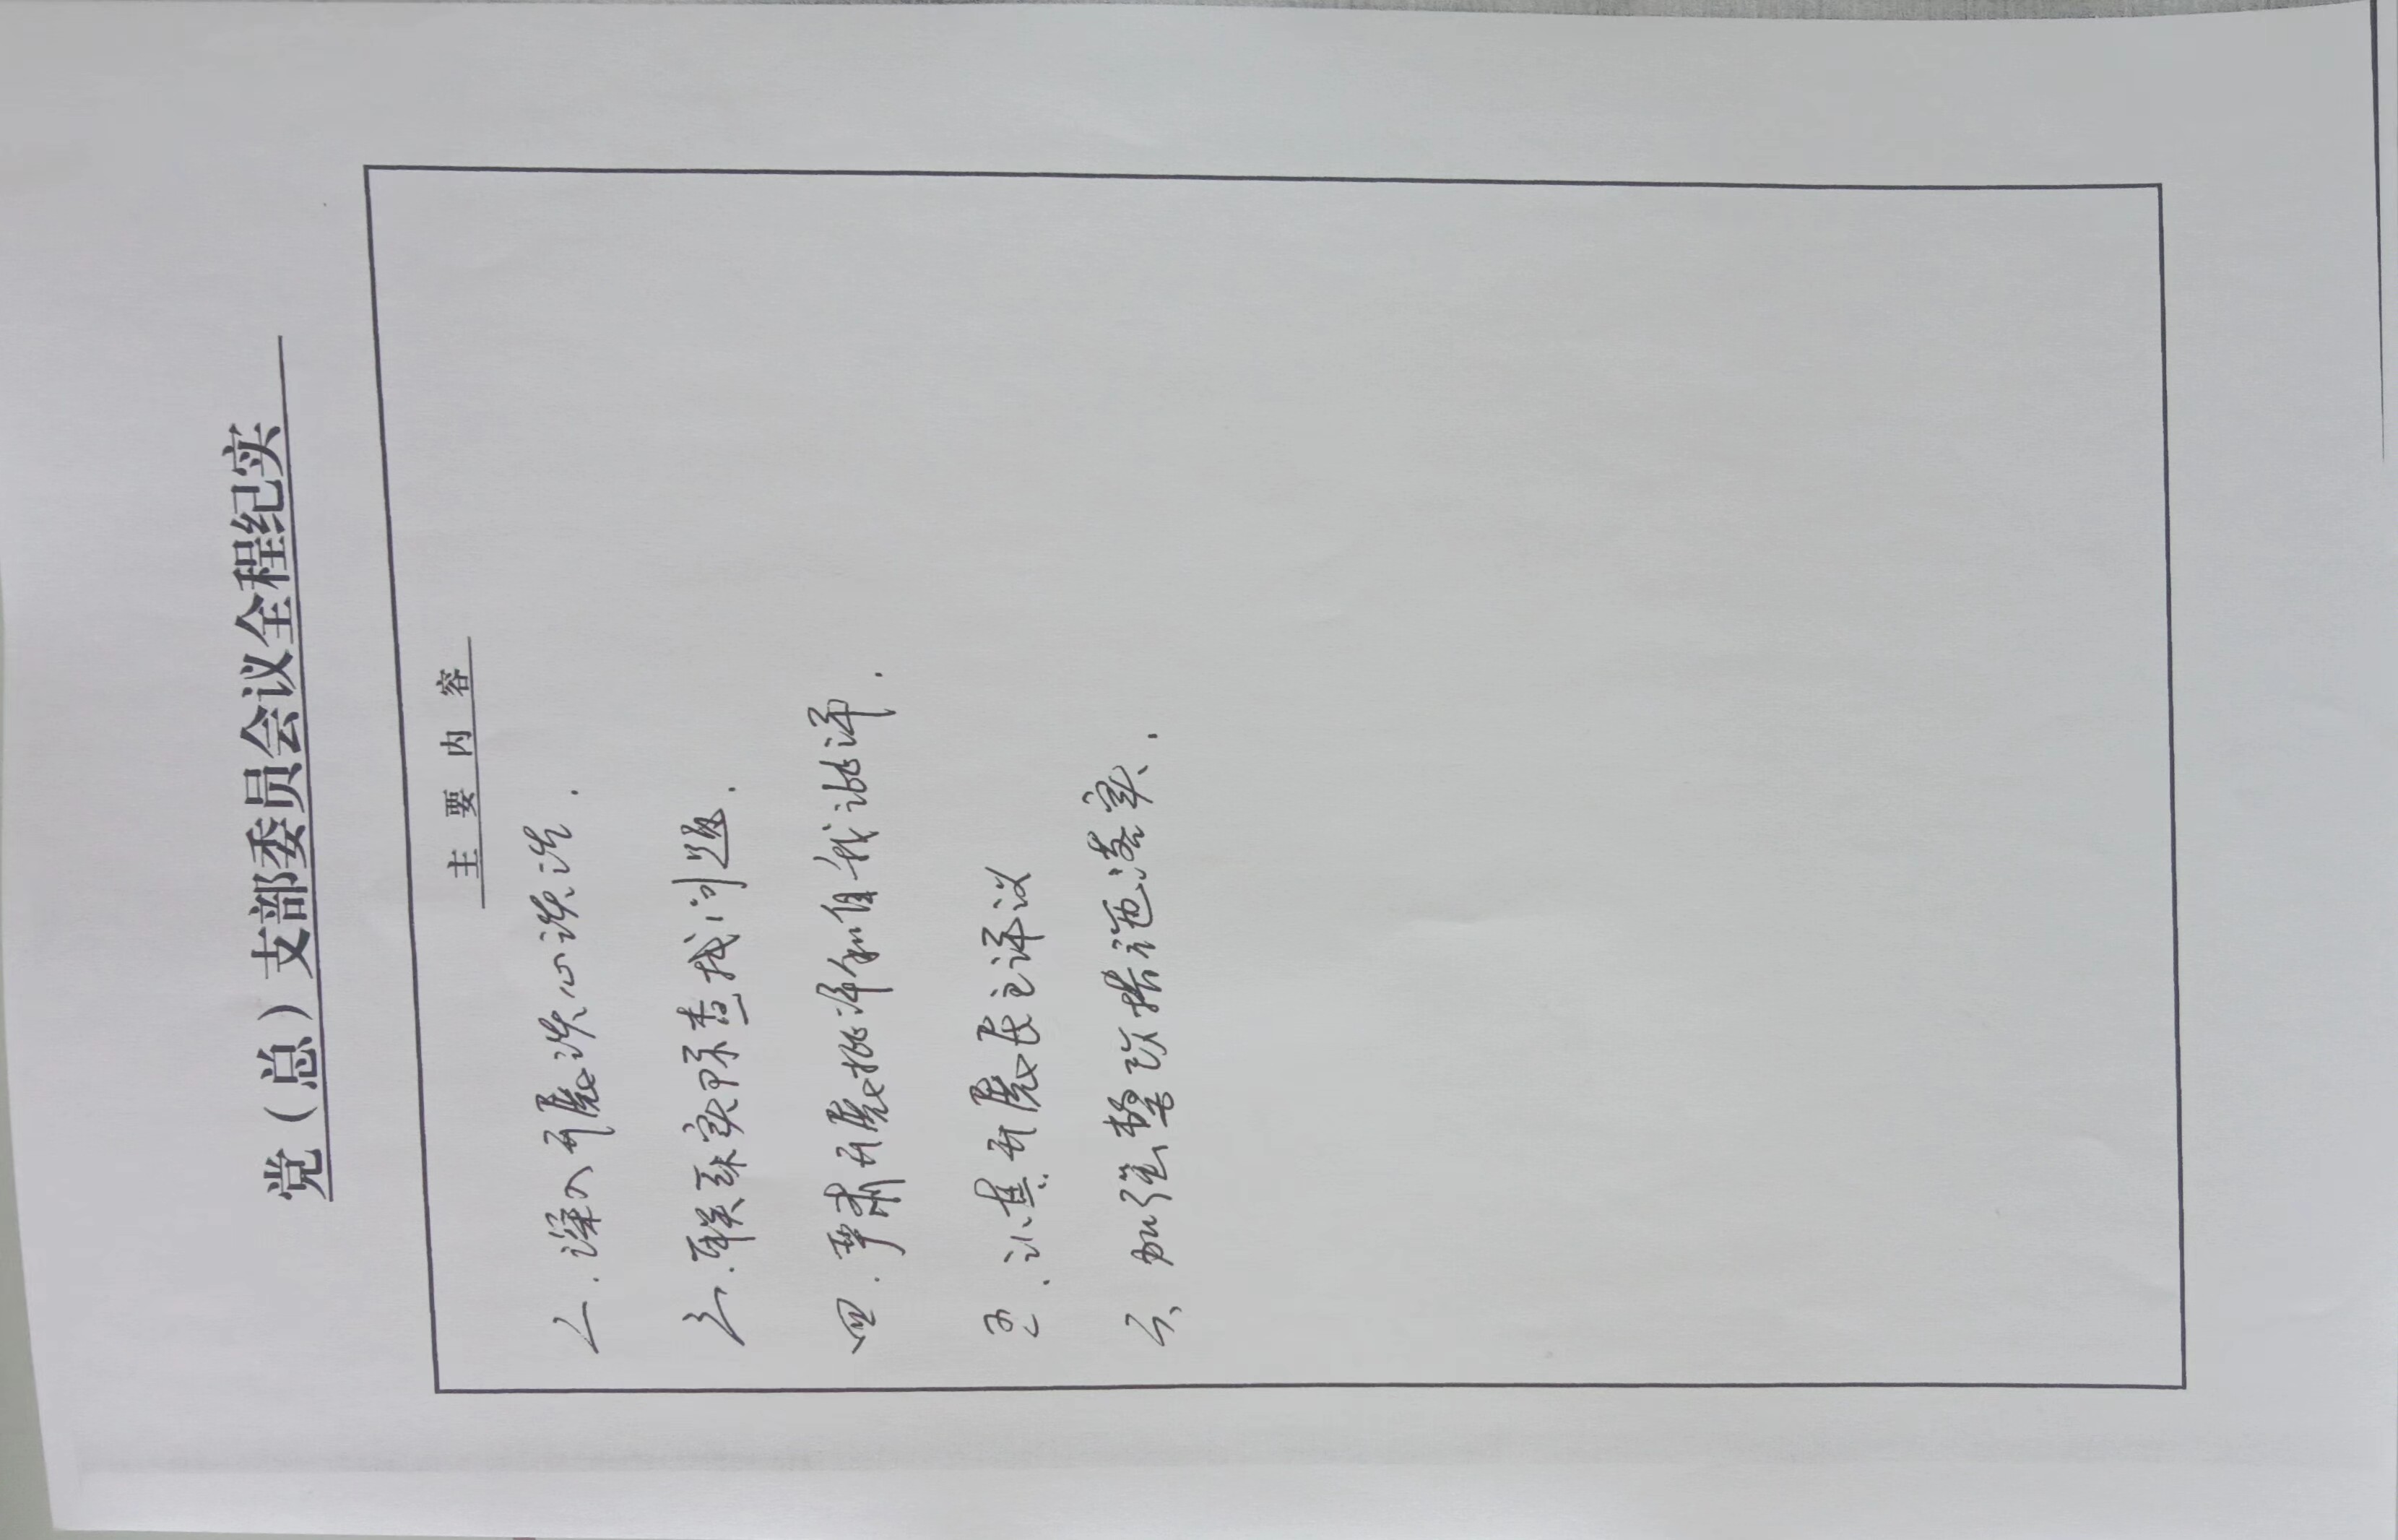 党（总）支部委员会议全程纪实
主要内容
二.深入开展谈心谈话.
三.联系实际查找问题.
四.严肃开展批评和自我批评.
五.认真开展民主评议
六、加强整改措施落实.